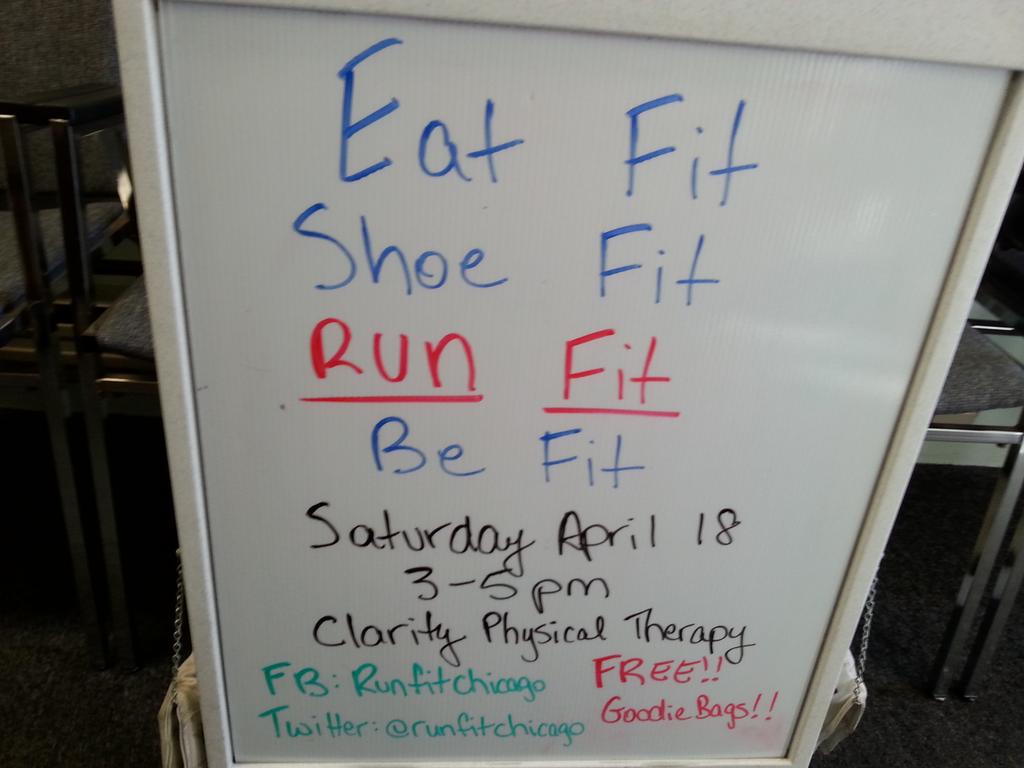 Eat Fit
Shoe Fit
Run Fit
Be Fit
Saturday April 18
3-5pm
Clarity Physical Therapy
FB: Runfitchicago
Twitter: @runfitchicago
FREE!!
Goodie Bags!!